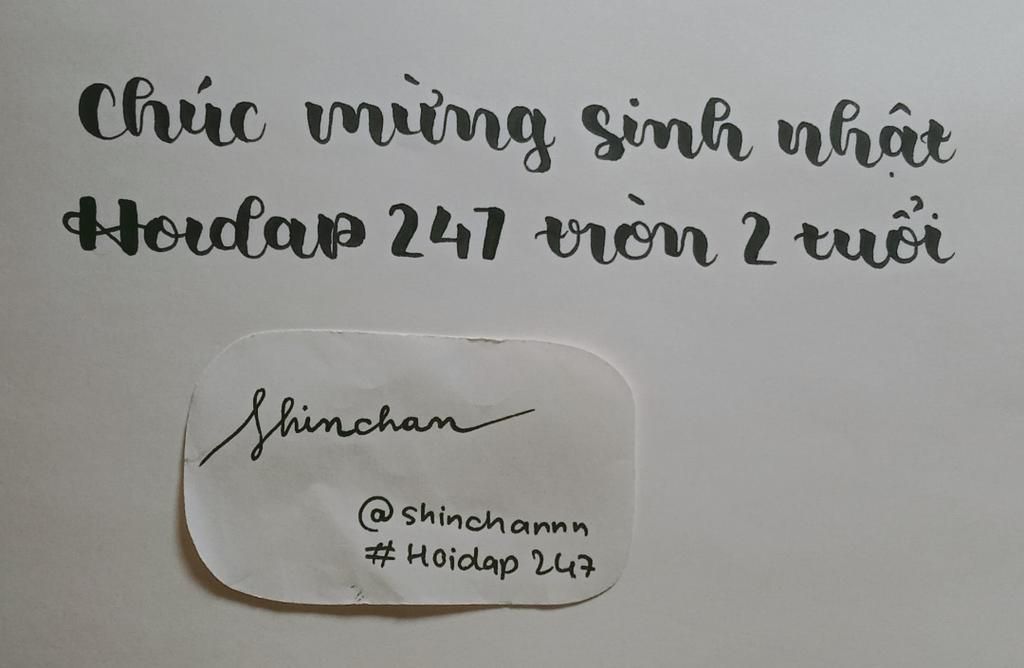 Chúc mừng sinh nhật
Hoidap 247 tròn 2 tuổi
Shinchan
@shinchannn
# Hoidap 247